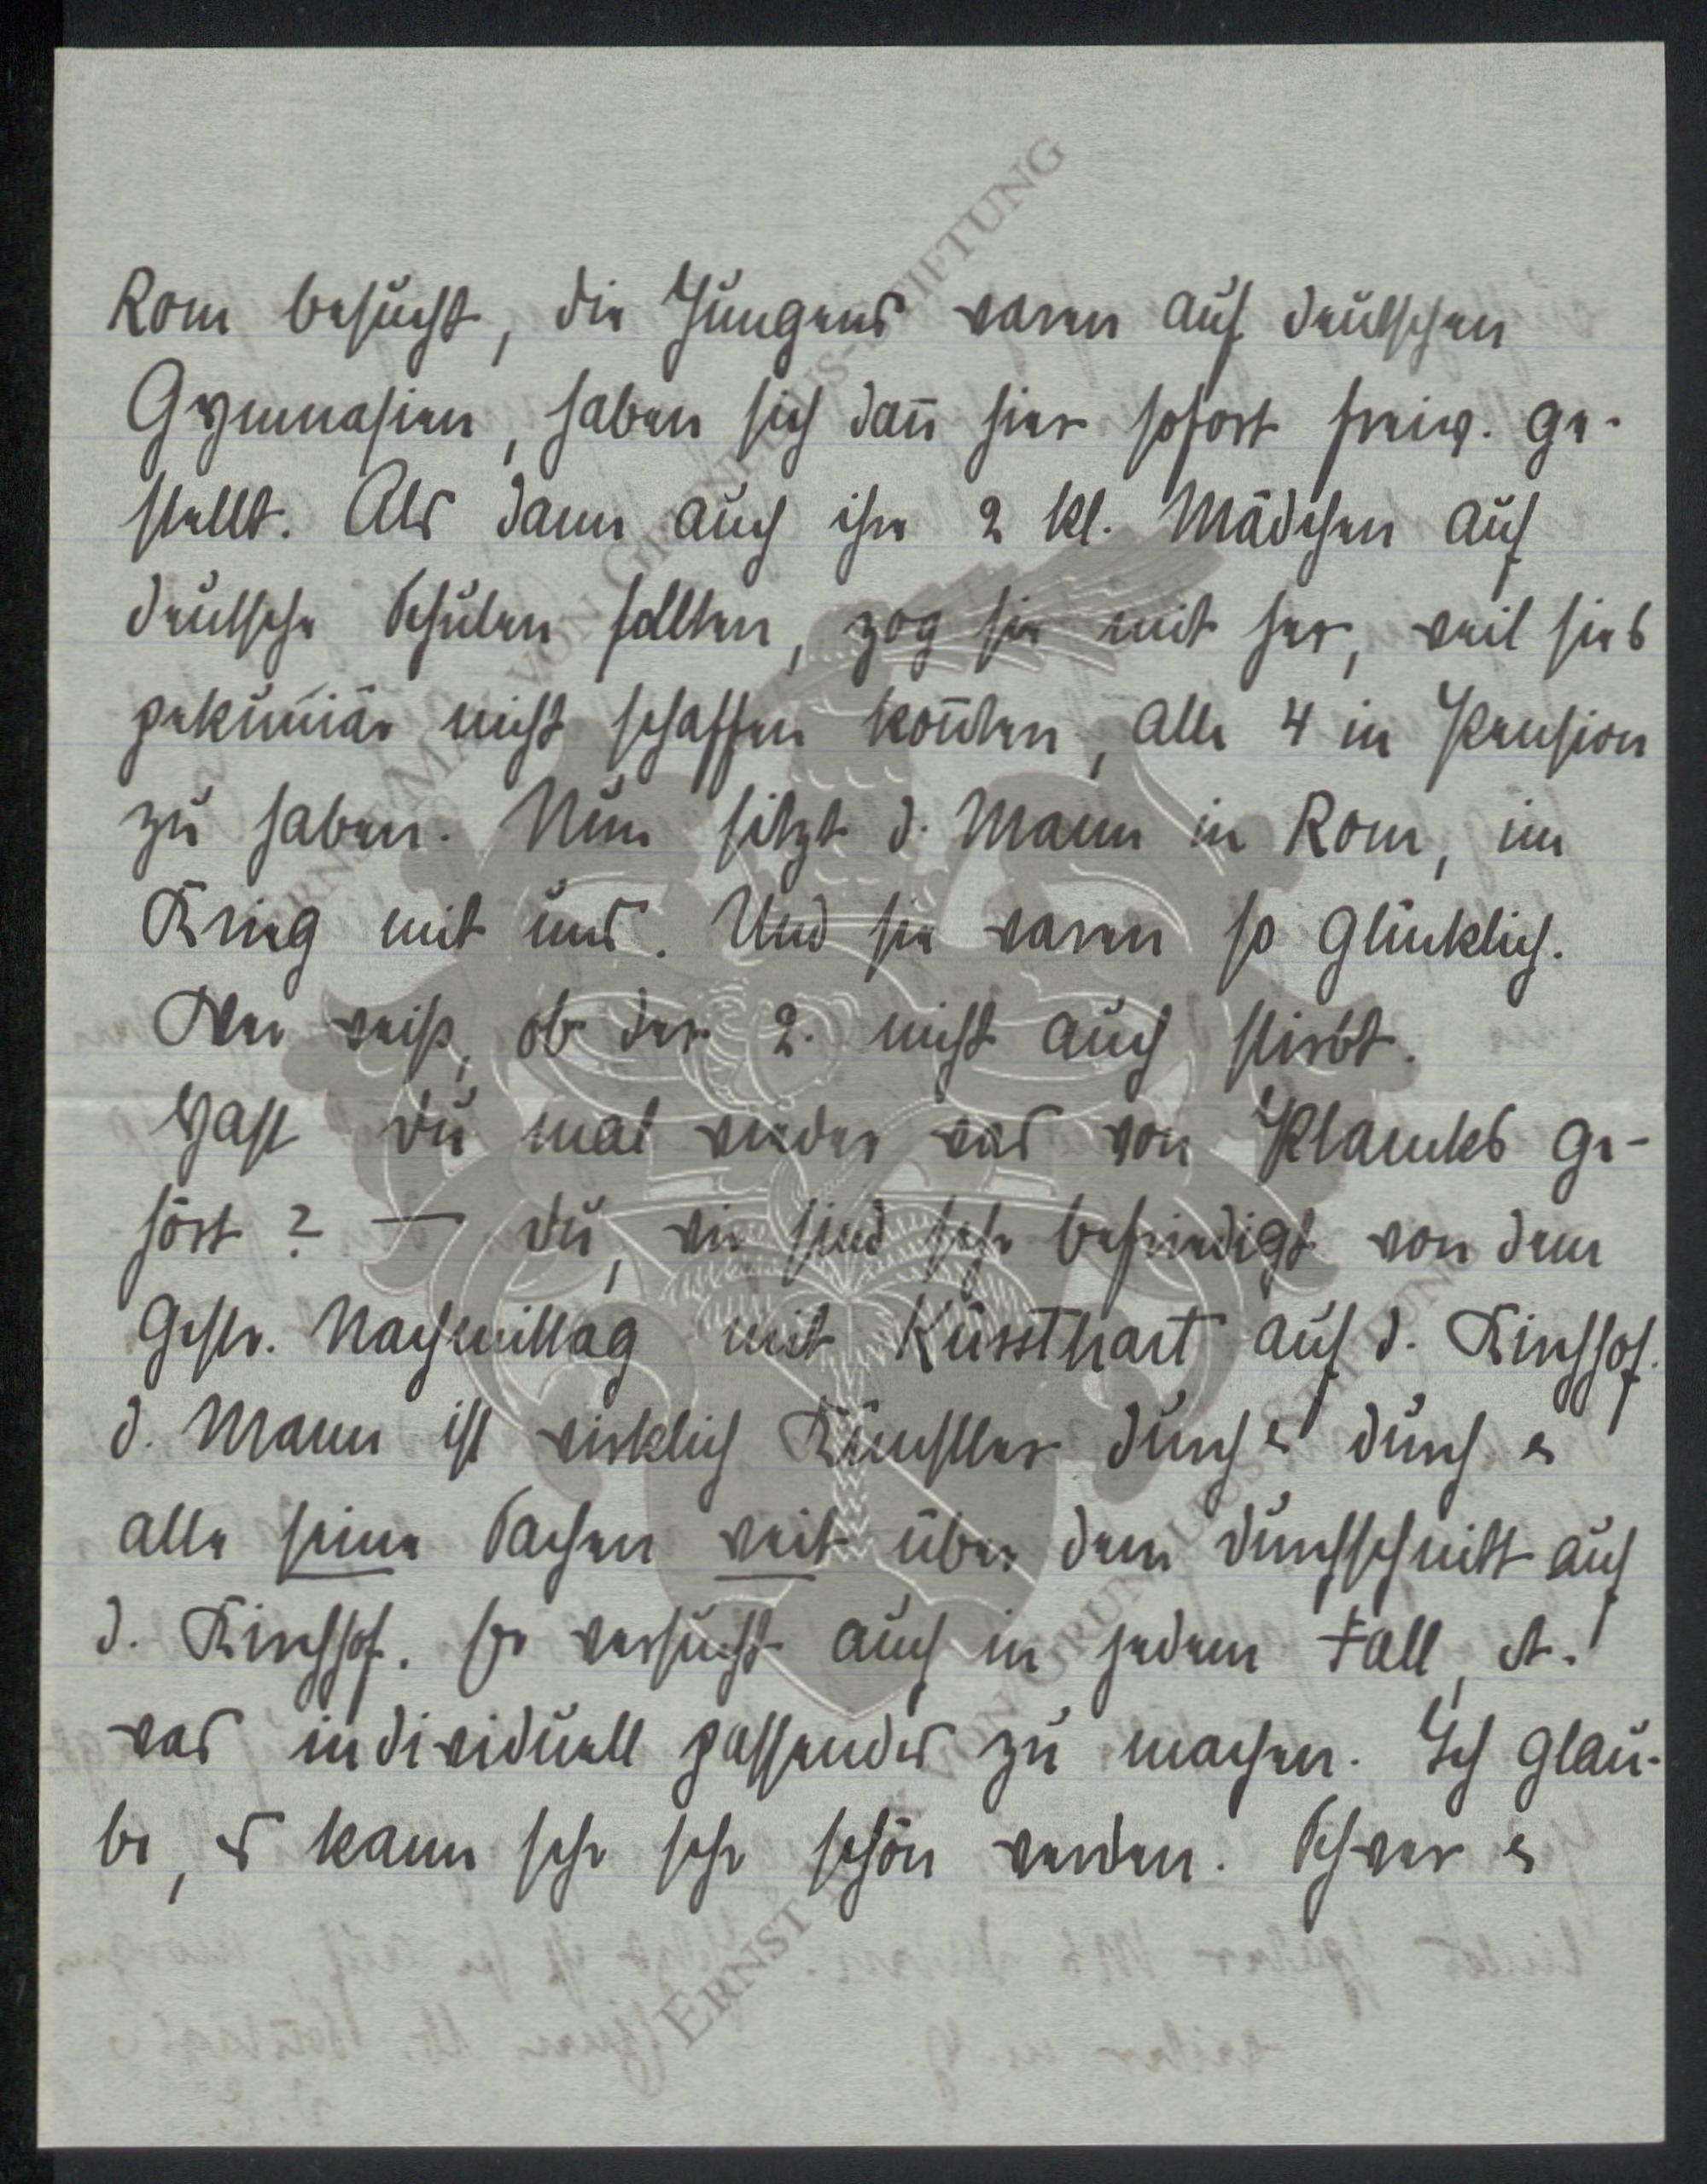 Rom besucht, die Jungens waren auf deutschen
Gymnasien, haben sich dan̄ hier sofort freiw. ge-
stellt. Als dann auch ihre 2 kl. Mädchen auf
deutsche Schulen sollten, zog sie mit her, weil sies
pekuniär nicht schaffen kon̄ten, alle 4 in Pension
zu haben. Nun sitzt d. Mann in Rom, im
Krieg mit uns. Und sie waren so glücklich.
Wer weiß, ob der 2. nicht auch stirbt.
Hast du mal wieder was von Plancks ge-
hört? — Du, wir sind sehr befriedigt von dem
gestr. Nachmittag mit Kussthart auf d. Kirchhof.
d. Mann ist wirklich Künstler durch & durch &
alle seine Sachen weit über dem Durchschnitt auf
d. Kirchhof. Er versucht auch in jedem Fall, et-
was individuell passendes zu machen. Ich glau-
be, es kann sehr sehr schön werden. Schwer &
ERNST MAX VON GRUNELIUS-STIFTUNG
ERNST MAX VON GRUNELIUS-STIFTUNG